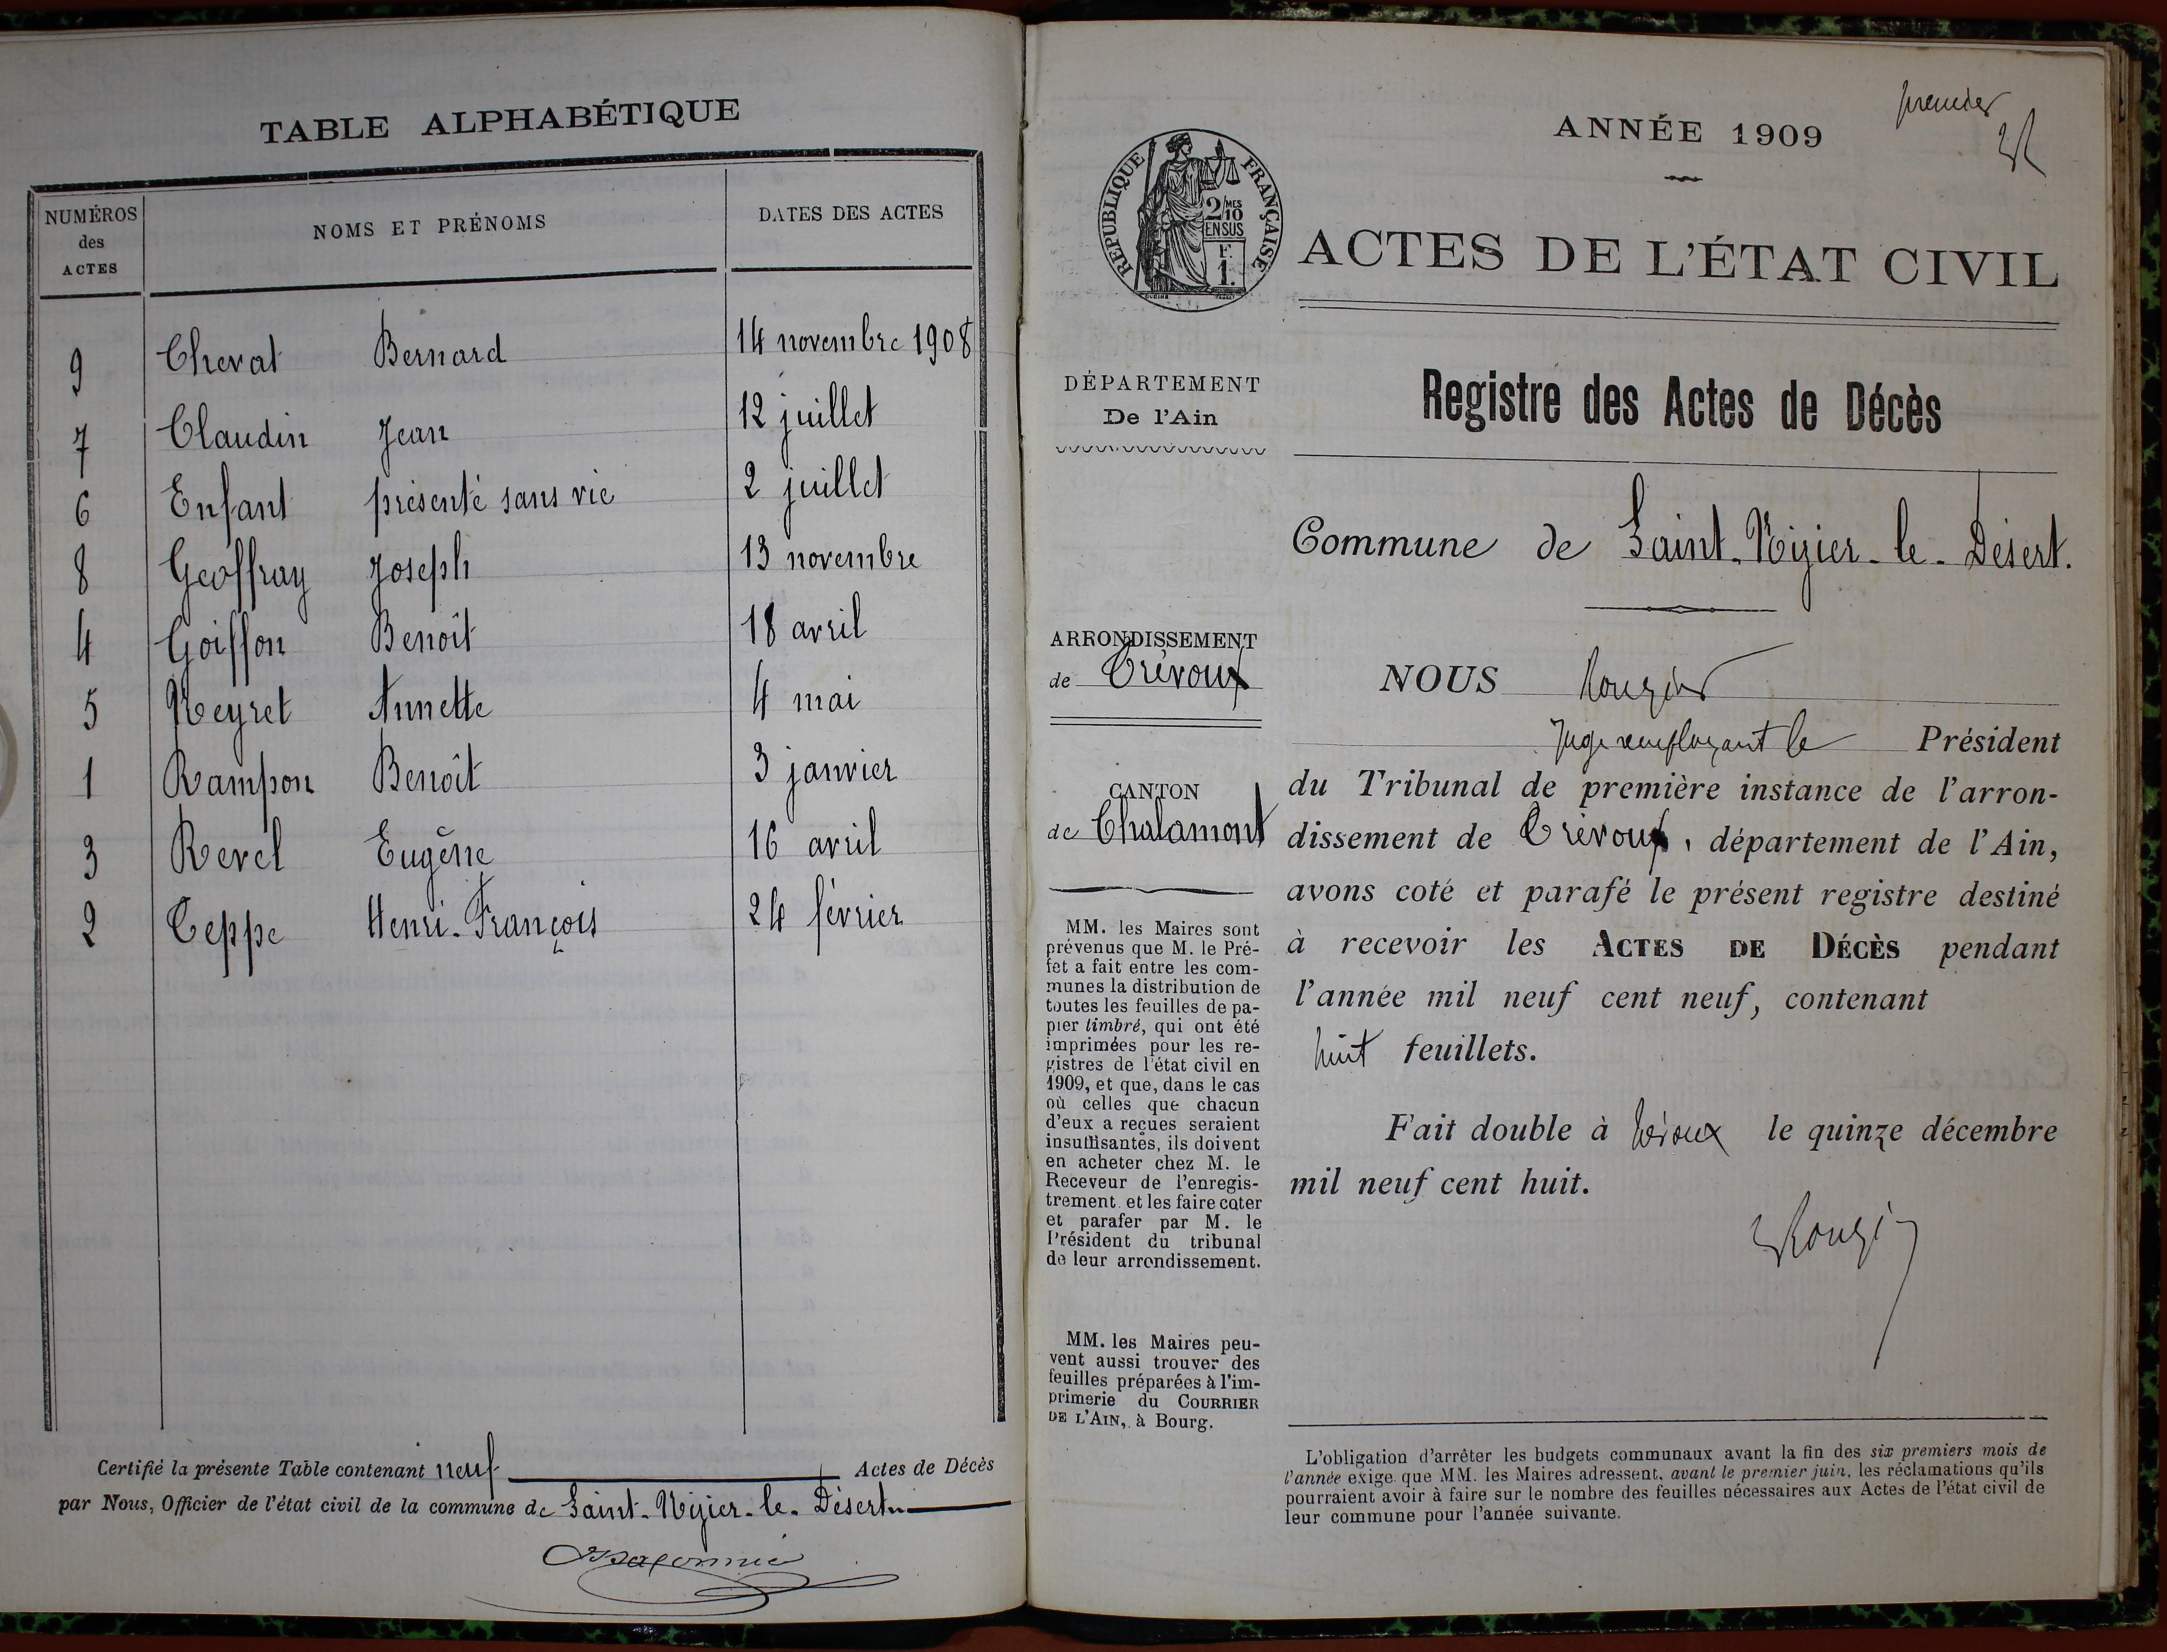 TABLE ALPHABÉTIQUE
NUMÉROS des ACTES NOMS ET PRÉNOMS DATES DES ACTES
9 Chevat Bernard 14 novembre 1908
7 Claudin Jean 12 juillet
6 Enfant présenté sans vie 2 juillet
8 Geoffray Joseph 13 novembre
4 Goiffon Benoît 18 avril
5 Neyret Annette 4 mai
1 Rampon Benoît 3 janvier
3 Revel Eugène 16 avril
2 Teppe Henri-François 24 février
Certifié la présente Table contenant neuf Actes de Décès
par Nous, Officier de l'état civil de la commune de Saint-Nizier-le-Désert
premier
ANNÉE 1909
RÉPUBLIQUE FRANÇAISE
2/MES 10
EN SUS
F.
1.
ACTES DE L'ÉTAT CIVIL
DÉPARTEMENT
De l'Ain
Registre des Actes de Décès
Commune de Saint-Nizier-le-Désert.
ARRONDISSEMENT
de Trévoux
CANTON
de Chalamont
MM. les Maires sont
prévenus que M. le Pré-
fet a fait entre les com-
munes la distribution de
toutes les feuilles de pa-
pier timbré, qui ont été
imprimées pour les re-
gistres de l'état civil en
1909, et que, dans le cas
où celles que chacun
d'eux a reçues seraient
insuffisantes, ils doivent
en acheter chez M. le
Receveur de l'enregis-
trement et les faire coter
et parafer par M. le
Président du tribunal
de leur arrondissement.
MM. les Maires peu-
vent aussi trouver des
feuilles préparées à l'im-
primerie du COURRIER
DE L'AIN, à Bourg.
NOUS
Juge remplaçant le Président
du Tribunal de première instance de l'arron-
dissement de Trévoux, département de l'Ain,
avons coté et parafé le présent registre destiné
à recevoir les ACTES DE DÉCÈS pendant
l'année mil neuf cent neuf, contenant
huit feuillets.
Fait double à Trévoux le quinze décembre
mil neuf cent huit.
L'obligation d'arrêter les budgets communaux avant la fin des six premiers mois de
l'année exige que MM. les Maires adressent, avant le premier juin, les réclamations qu'ils
pourraient avoir à faire sur le nombre des feuilles nécessaires aux Actes de l'état civil de
leur commune pour l'année suivante.